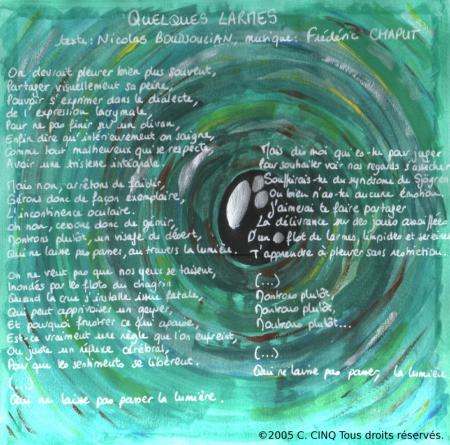 QUELQUES LARMES
texte: Nicolas BOUDJOULIAN, musique: Frédéric CHAPUT
On devrait pleurer bien plus souvent,
Partager visuellement sa peine,
Pouvoir s'exprimer dans le dialecte,
de l'expression lacrymale,
Pour ne pas finir sur un divan,
Enfin dire qu'intérieurement on saigne,
Comme tout malheureux qui se respecte,
Avoir une tristesse intégrale.
Mais non, arrêtons de faiblir,
Gérons donc de façon exemplaire,
L'incontinence oculaire.
Oh non, cessons donc de gémir,
Montrons plutôt, un visage de désert,
Qui ne laisse pas passer, au travers la lumière.
On ne veut pas que nos yeux se taisent,
Inondés par les flots du chagrin
Quand la crue s'installe issue fatale,
Qui peut apprivoiser un geyser,
Et pourquoi frustrer ce qui apaise,
Est-ce vraiment une règle que l'on enfreint,
Ou juste un réflexe cérébral,
Pour que les sentiments se libèrent.
(...)
Qui ne laisse pas passer la lumière.
Mais dis moi qui es-tu pour juger
Pour souhaiter voir nos regards s'assécher
Souffrirais-tu du syndrome de Sjögren
Ou bien n'as-tu aucune émotion
J'aimerai te faire partager
La délivrance sur des joues
D'un flot de larmes, limpides et sereines
T'apprendre à pleurer sans restriction.
(...)
Montrons plutôt,
Montrons plutôt,
Montrons plutôt...
(...)
Qui ne laisse pas passer, la lumière
©2005 C. CINQ Tous droits réservés.